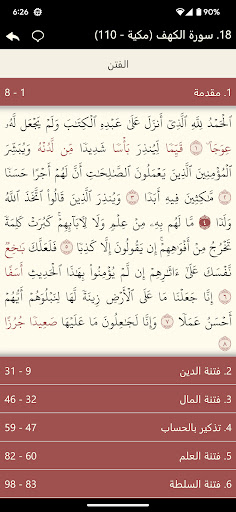 6:26 90%
18. سورة الكهف (مكية - 110)
الفتن
1. مقدمة 1 - 8
ٱلۡحَمۡدُ لِلَّهِ ٱلَّذِيٓ أَنزَلَ عَلَىٰ عَبۡدِهِ ٱلۡكِتَٰبَ وَلَمۡ يَجۡعَل لَّهُۥ
عِوَجَاۜ ١ قَيِّمٗا لِّيُنذِرَ بَأۡسٗا شَدِيدٗا مِّن لَّدُنۡهُ وَيُبَشِّرَ
ٱلۡمُؤۡمِنِينَ ٱلَّذِينَ يَعۡمَلُونَ ٱلصَّٰلِحَٰتِ أَنَّ لَهُمۡ أَجۡرًا حَسَنٗا
٢ مَّٰكِثِينَ فِيهِ أَبَدٗا ٣ وَيُنذِرَ ٱلَّذِينَ قَالُواْ ٱتَّخَذَ ٱللَّهُ
وَلَدٗا ٤ مَّا لَهُم بِهِۦ مِنۡ عِلۡمٖ وَلَا لِأٓبَآئِهِمۡۚ كَبُرَتۡ كَلِمَةٗ
تَخۡرُجُ مِنۡ أَفۡوَٰهِهِمۡۚ إِن يَقُولُونَ إِلَّا كَذِبٗا ٥ فَلَعَلَّكَ بَٰخِعٞ
نَّفۡسَكَ عَلَىٰٓ ءَاثَٰرِهِمۡ إِن لَّمۡ يُؤۡمِنُواْ بِهَٰذَا ٱلۡحَدِيثِ أَسَفًا
٦ إِنَّا جَعَلۡنَا مَا عَلَى ٱلۡأَرۡضِ زِينَةٗ لَّهَا لِنَبۡلُوَهُمۡ أَيُّهُمۡ
أَحۡسَنُ عَمَلٗا ٧ وَإِنَّا لَجَٰعِلُونَ مَا عَلَيۡهَا صَعِيدٗا جُرُزًا
٨
2. فتنة الدين 9 - 31
3. فتنة المال 32 - 46
4. تذكير بالحساب 47 - 59
5. فتنة العلم 60 - 82
6. فتنة السلطة 83 - 98